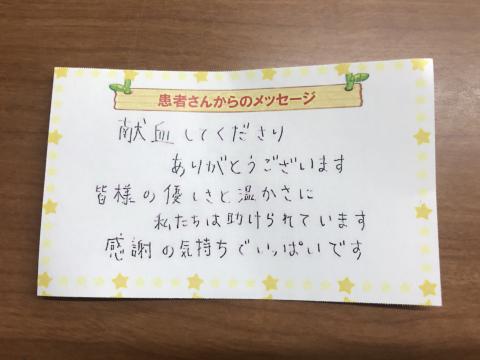 患者さんからのメッセージ
献血してくださり
ありがとうございます
皆様の優しさと温かさに
私たちは助けられています
感謝の気持ちでいっぱいです